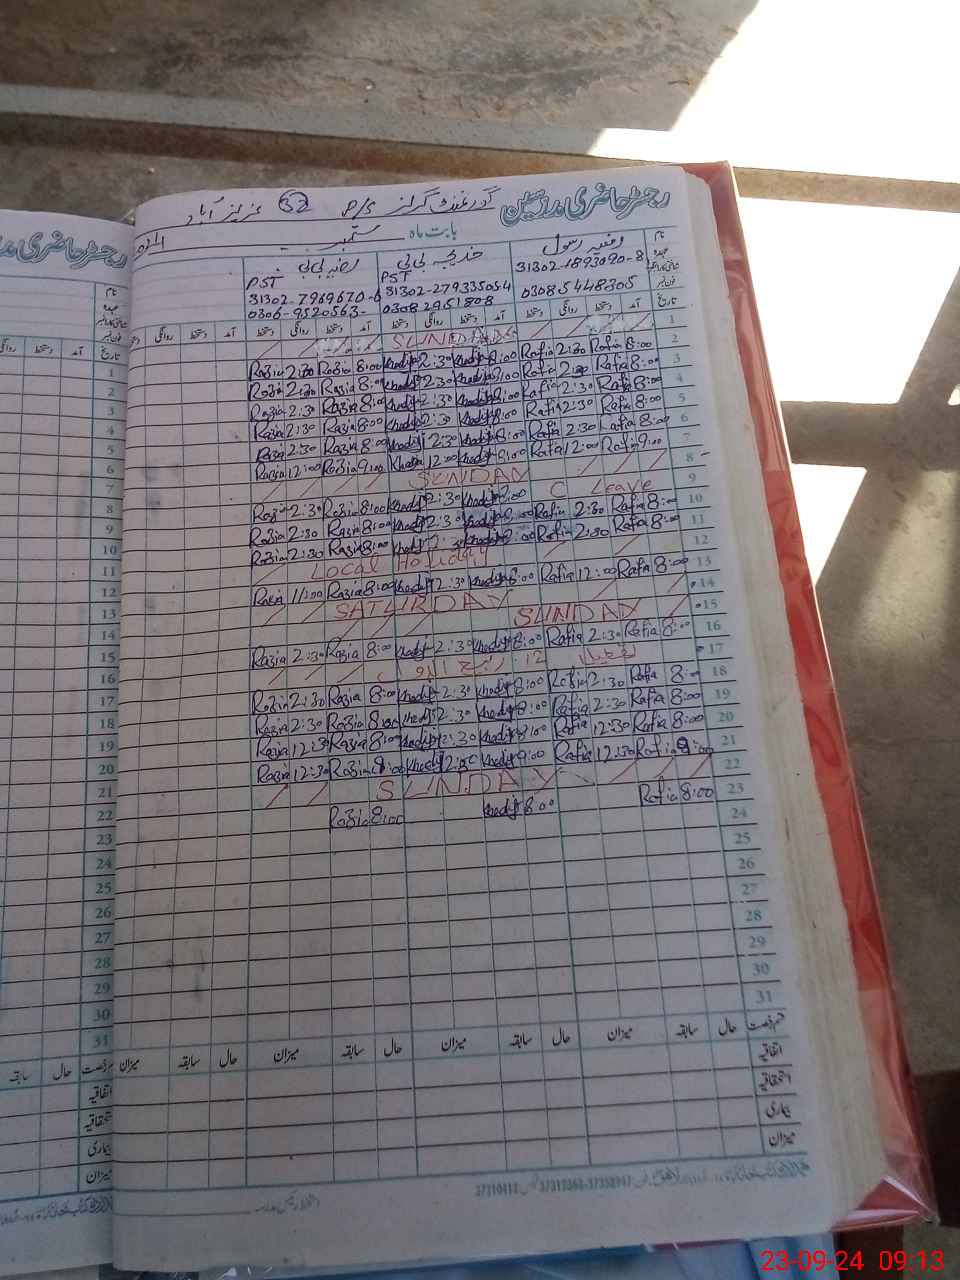 رجسٹر حاضری مدرسین
گورنمنٹ گرلز P/S 32 عزیز آباد
بابت ماہ ستمبر
نام رفعیہ رسول خدیجہ بی بی رضیہ بی بی
عہدہ PST PST
31302-1893090-8 31302-279335054 31302-7969670-6
03085448305 03082951808 0306-9520563-
تاریخ آمد دستخط روانگی دستخط آمد دستخط روانگی دستخط آمد دستخط روانگی دستخط
1 SUNDAY
2 Razia 2:30 Razia 8:00 Khadija 2:30 Khadija 8:00 Rafia 2:30 Rafia 8:00
3 Razia 2:30 Razia 8:00 Khadija 2:30 Khadija 8:00 Rafia 2:30 Rafia 8:00
4 Razia 2:30 Razia 8:00 Khadija 2:30 Khadija 8:00 Rafia 2:30 Rafia 8:00
5 Razia 2:30 Razia 8:00 Khadija 2:30 Khadija 8:00 Rafia 2:30 Rafia 8:00
6 Razia 2:30 Razia 8:00 Khadija 2:30 Khadija 8:00 Rafia 2:30 Rafia 8:00
7 Razia 12:00 Razia 9:00 Khadija 12:00 Khadija 9:00 Rafia 12:00 Rafia 9:00
8 SUNDAY
9 Razia 2:30 Razia 8:00 Khadija 2:30 Khadija 8:00 C Leave
10 Razia 2:30 Razia 8:00 Khadija 2:30 Rafia 2:30 Rafia 8:00
11 Razia 2:30 Razia 8:00 Khadija 2:30 Rafia 2:30 Rafia 8:00
12 Local Holiday
13 Razia 11:00 Razia 8:00 Khadija 2:30 Khadija 8:00 Rafia 12:00 Rafia 8:00
14 SATURDAY
15 SUNDAY
16 Razia 2:30 Razia 8:00 Khadija 2:30 Khadija 8:00 Rafia 2:30 Rafia 8:00
17 تعطیل 12 ربیع الاول
18 Razia 2:30 Razia 8:00 Khadija 2:30 Khadija 8:00 Rafia 2:30 Rafia 8:00
19 Razia 2:30 Razia 8:00 Khadija 2:30 Khadija 8:00 Rafia 2:30 Rafia 8:00
20 Razia 12:30 Razia 8:00 Khadija 12:30 Khadija 8:00 Rafia 12:30 Rafia 8:00
21 Razia 12:30 Razia 9:00 Khadija Khadija 9:00 Rafia 12:30 Rafia 9:00
22 SUNDAY
23 Razia 8:00 Khadija 8:00 Rafia 8:00
24
25
26
27
28
29
30
31
قسم رخصت حال سابقہ میزان حال سابقہ میزان حال سابقہ میزان حال سابقہ میزان
اتفاقیہ
استحقاقیہ
بیماری
میزان
رجسٹر حاضری مد
نام
عہدہ
تاریخ آمد دستخط روانگی
1
2
3
4
5
6
7
8
9
10
11
12
13
14
15
16
17
18
19
20
21
22
23
24
25
26
27
28
29
30
31
حال سابقہ
اتفاقیہ
استحقاقیہ
بیماری
میزان
23-09-24 09:13